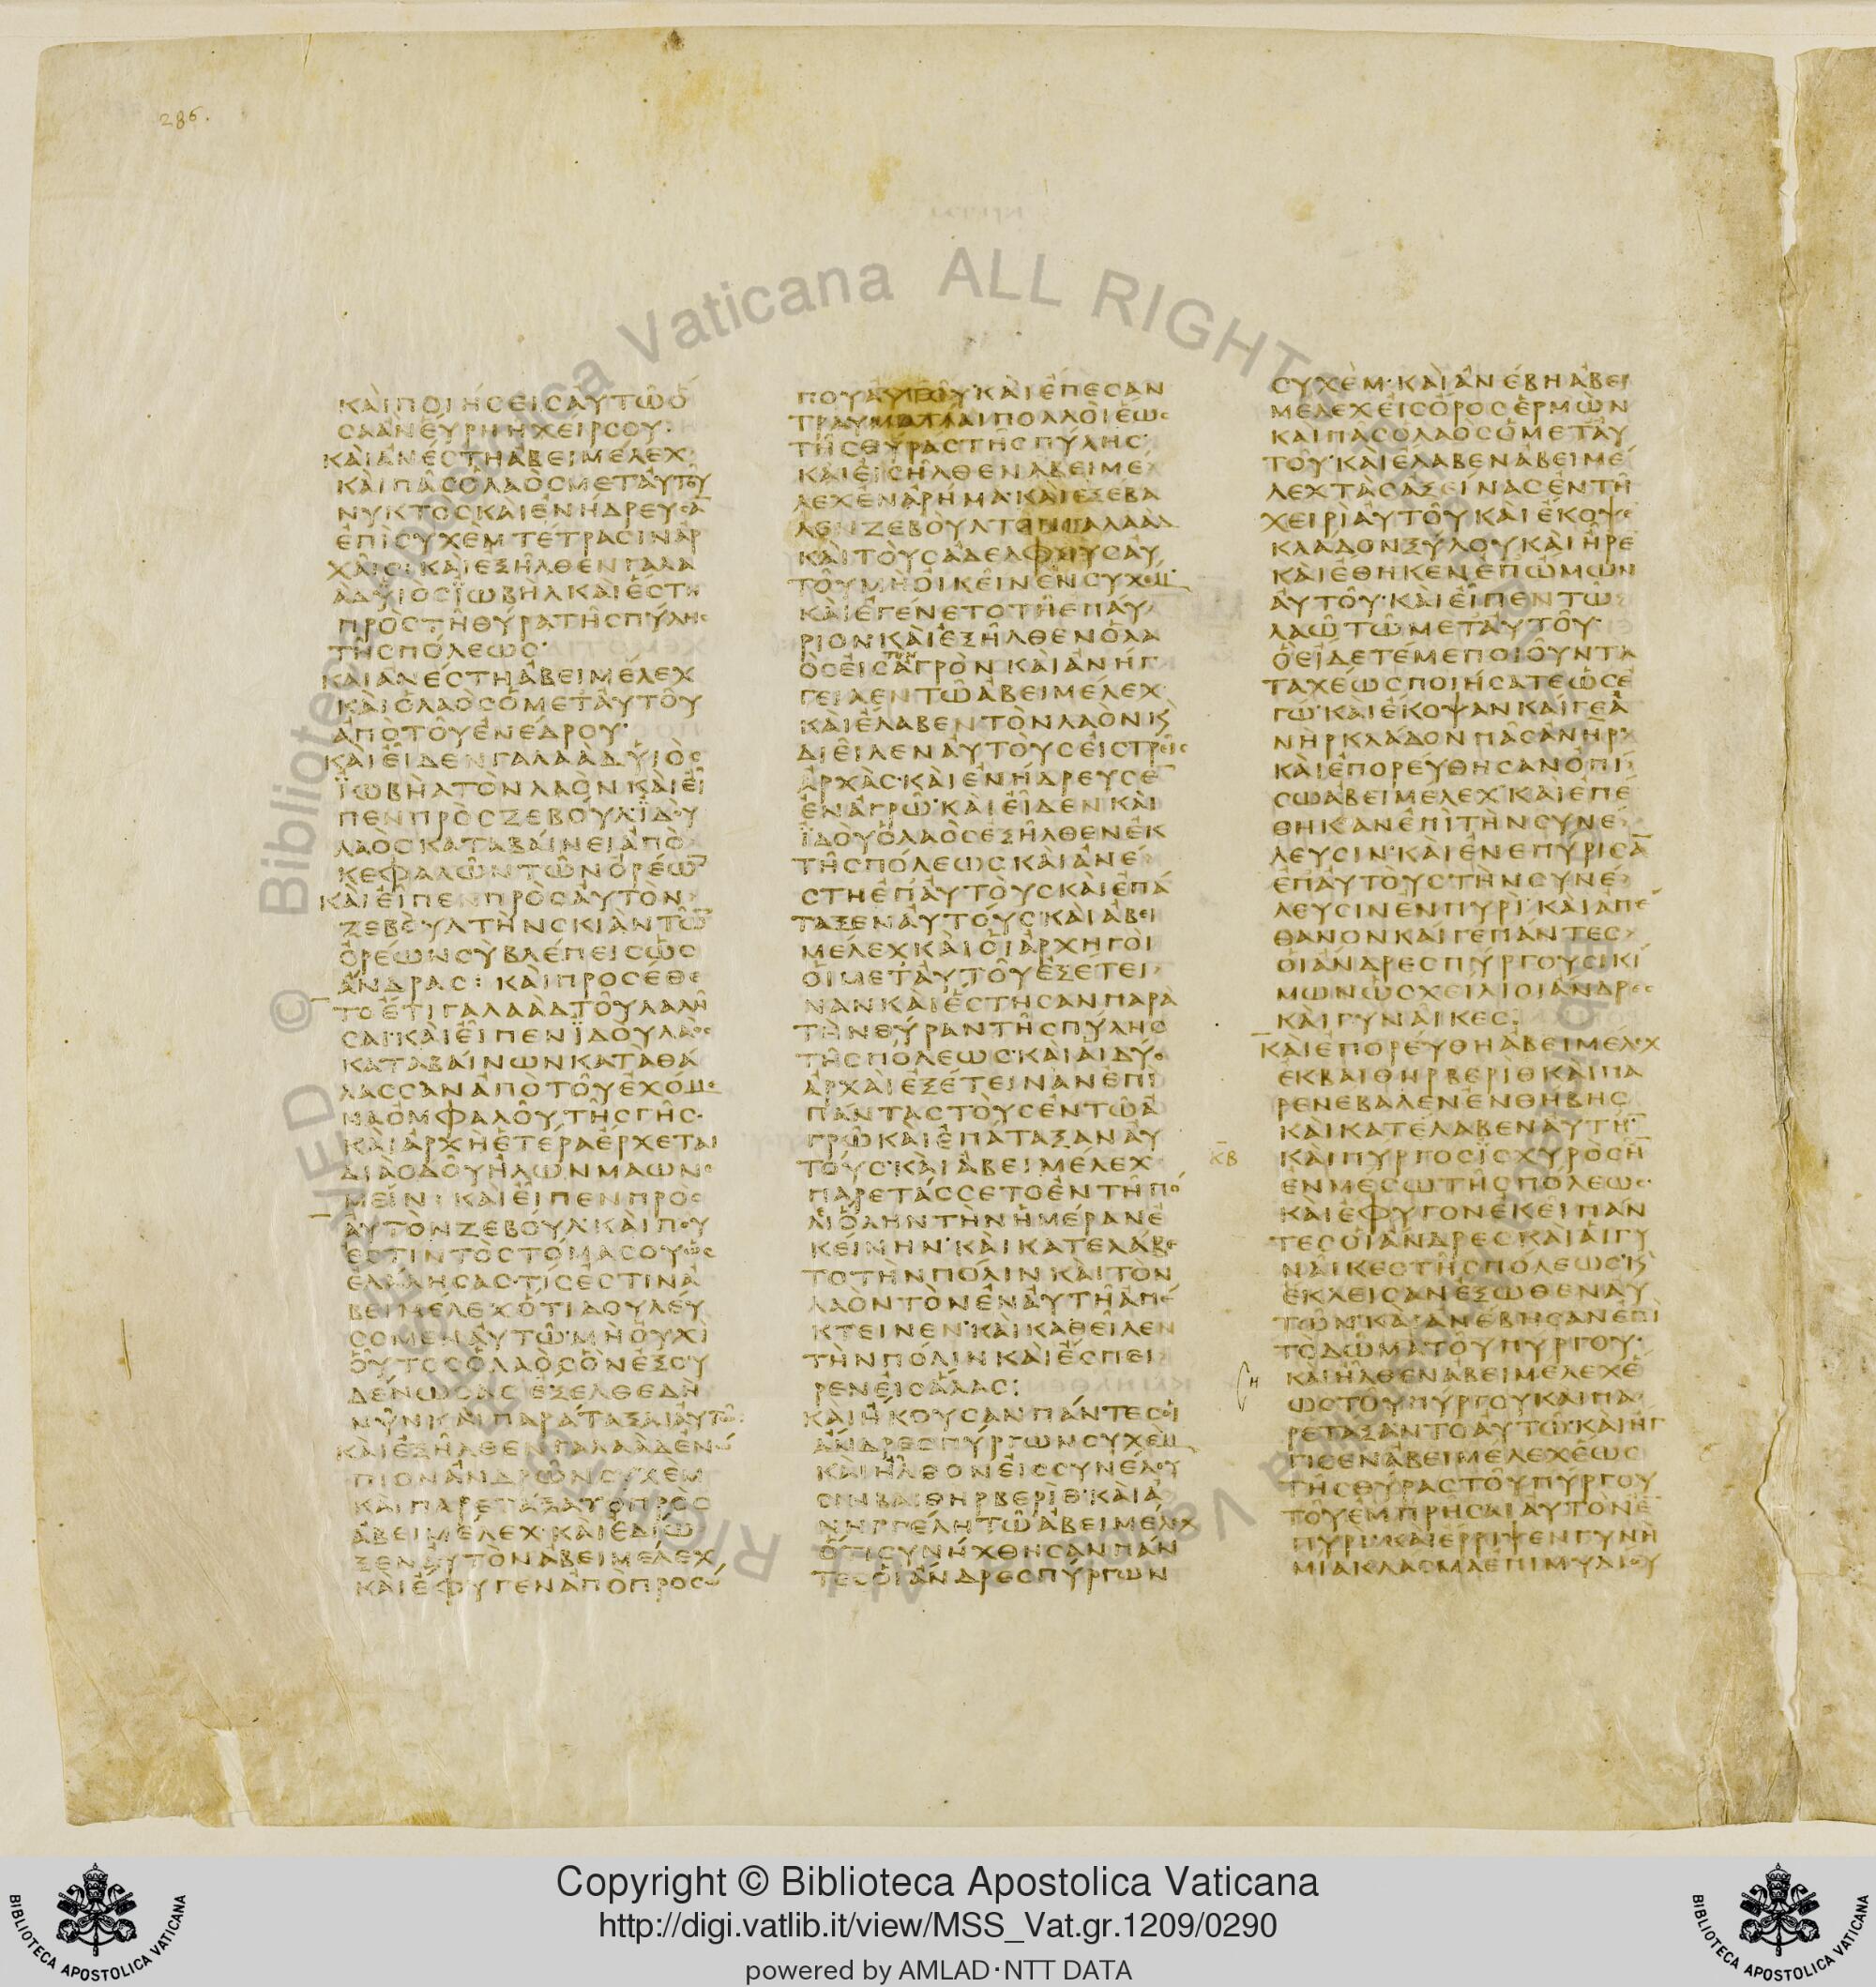 286.
ΚΑΙΠΟΙΗCΕΙCΑΥΤΩΟ
CΑΑΝΕΥΡΗΗΧΕΙΡCΟΥ·
ΚΑΙΑΝΕCΤΗΑΒΕΙΜΕΛΕΧ
ΚΑΙΠΑCΟΛΑΟCΜΕΤΑΥΤΟΥ
ΝΥΚΤΟCΚΑΙΕΝΗΔΡΕΥCΑ̅
ΕΠΙCΥΧΕΜΤΕΤΡΑCΙΝΑΡ
ΧΑΙC· ΚΑΙΕΞΗΛΘΕΝΓΑΛΑ
ΑΔΥΙΟCΪΩΒΗΛΚΑΙΕCΤΗ
ΠΡΟCΤΗΘΥΡΑΤΗCΠΥΛΗC
ΤΗCΠΟΛΕΩC·
ΚΑΙΑΝΕCΤΗΑΒΕΙΜΕΛΕΧ
ΚΑΙΟΛΑΟCΟΜΕΤΑΥΤΟΥ
ΑΠΟΤΟΥΕΝΕΔΡΟΥ·
ΚΑΙΕΙΔΕΝΓΑΛΑΑΔΥΙΟC
ΪΩΒΗΛΤΟΝΛΑΟΝΚΑΙΕΙ
ΠΕΝΠΡΟCΖΕΒΟΥΛΪΔΟΥ
ΛΑΟCΚΑΤΑΒΑΙΝΕΙΑΠΟ
ΚΕΦΑΛΩΝΤΩΝΟΡΕΩ̅
ΚΑΙΕΙΠΕΝΠΡΟCΑΥΤΟΝ
ΖΕΒΟΥΛΤΗΝCΚΙΑΝΤΩ̅
ΟΡΕΩΝCΥΒΛΕΠΕΙCΩC
ΑΝΔΡΑC: ΚΑΙΠΡΟCΕΘΕ
ΤΟΕΤΙΓΑΛΑΑΔΤΟΥΛΑΛΗ
CΑΙ·ΚΑΙΕΙΠΕΝΪΔΟΥΛΑΟC
ΚΑΤΑΒΑΙΝΩΝΚΑΤΑΘΑ
ΛΑCCΑΝΑΠΟΤΟΥΕΧΟΜΕ
ΝΑΟΜΦΑΛΟΥΤΗCΓΗC·
ΚΑΙΑΡΧΗΕΤΕΡΑΕΡΧΕΤΑΙ
ΔΙΑΟΔΟΥΗΛΩΝΜΑΩΝΕ
ΜΕΙΝ: ΚΑΙΕΙΠΕΝΠΡΟC
ΑΥΤΟΝΖΕΒΟΥΛ·ΚΑΙΠΟΥ
ΕCΤΙΝΤΟCΤΟΜΑCΟΥΩC
ΕΛΑΛΗCΑC·ΤΙCΕCΤΙΝΑ
ΒΕΙΜΕΛΕΧΟΤΙΔΟΥΛΕΥ
CΟΜΕΝΑΥΤΩ·ΜΗΟΥΧΙ
ΟΥΤΟCΟΛΑΟCΟΝΕΞΟΥ
ΔΕΝΩCΑC ΕΞΕΛΘΕΔΗ
ΝΥΝΚΑΙΠΑΡΑΤΑΞΑΙΑΥΤΩ·
ΚΑΙΕΞΗΛΘΕΝΓΑΛΑΑΔΕΝΩ
ΠΙΟΝΑΝΔΡΩΝCΥΧΕΜ
ΚΑΙΠΑΡΕΤΑΞΑΤΟΠΡΟC
ΑΒΕΙΜΕΛΕΧ·ΚΑΙΕΔΙΩ
ΞΕΝΑΥΤΟΝΑΒΕΙΜΕΛΕΧ
ΚΑΙΕΦΥΓΕΝΑΠΟΠΡΟCΩ
ΠΟΥΑΥΤΟΥ·ΚΑΙΕΠΕCΑΝ
ΤΡΑΥΜΑΤΙΑΙΠΟΛΛΟΙΕΩC
ΤΗCΘΥΡΑCΤΗCΠΥΛΗC·
ΚΑΙΕΙCΗΛΘΕΝΑΒΕΙΜΕ
ΛΕΧΕΝΑΡΗΜΑ·ΚΑΙΕΞΕΒΑ
ΛΕΝΖΕΒΟΥΛΤΟΝΓΑΛΑΑΔ
ΚΑΙΤΟΥCΑΔΕΛΦΟΥCΑΥ
ΤΟΥΜΗΟΙΚΕΙΝΕΝCΥΧΕΜ·
ΚΑΙΕΓΕΝΕΤΟΤΗΕΠΑΥ
ΡΙΟΝΚΑΙΕΞΗΛΘΕΝΟΛΑ
ΟCΕΙCΤΟΝΑΓΡΟΝ ΚΑΙΑΝΗΓ
ΓΕΙΛΕΝΤΩΑΒΕΙΜΕΛΕΧ
ΚΑΙΕΛΑΒΕΝΤΟΝΛΑΟΝΚ̀
ΔΙΕΙΛΕΝΑΥΤΟΥCΕΙCΤΡΕΙC
ΑΡΧΑC·ΚΑΙΕΝΗΔΡΕΥCΕ̅
ΕΝΑΓΡΩ·ΚΑΙΕΙΔΕΝΚΑΙ
ΪΔΟΥΟΛΑΟCΕΞΗΛΘΕΝΕΚ
ΤΗCΠΟΛΕΩC ΚΑΙΑΝΕ
CΤΗΕΠΑΥΤΟΥCΚΑΙΕΠΑ
ΤΑΞΕΝΑΥΤΟΥC·ΚΑΙΑΒΕΙ
ΜΕΛΕΧΚΑΙΟΙΑΡΧΗΓΟΙ
ΟΙΜΕΤΑΥΤΟΥΕΞΕΤΕΙ
ΝΑΝΚΑΙΕCΤΗCΑΝΠΑΡΑ
ΤΗΝΘΥΡΑΝΤΗCΠΥΛΗC
ΤΗCΠΟΛΕΩC·ΚΑΙΑΙΔΥΟ
ΑΡΧΑΙΕΞΕΤΕΙΝΑΝΕΠΙ
ΠΑΝΤΑCΤΟΥCΕΝΤΩΑ
ΓΡΩΚΑΙΕΠΑΤΑΞΑΝΑΥ
ΤΟΥC·ΚΑΙΑΒΕΙΜΕΛΕΧ
ΠΑΡΕΤΑCCΕΤΟΕΝΤΗΠΟ
ΛΕΙΟΛΗΝΤΗΝΗΜΕΡΑΝΕ
ΚΕΙΝΗΝ·ΚΑΙΚΑΤΕΛΑΒΕ
ΤΟΤΗΝΠΟΛΙΝΚΑΙΤΟΝ
ΛΑΟΝΤΟΝΕΝΑΥΤΗΑΠΕ
ΚΤΕΙΝΕΝ·ΚΑΙΚΑΘΕΙΛΕΝ
ΤΗΝΠΟΛΙΝΚΑΙΕCΠΕΙ
ΡΕΝΕΙCΑΛΑC:
ΚΑΙΗΚΟΥCΑΝΠΑΝΤΕCΟΙ
ΑΝΔΡΕCΠΥΡΓΩΝCΥΧΕΜ
ΚΑΙΗΛΘΟΝΕΙCCΥΝΕΛΕΥ
CΙΝΒΑΙΘΗΡΒΕΡΙΘ·ΚΑΙΑ
ΝΗΓΓΕΛΗΤΩΑΒΕΙΜΕΛΕΧ
ΟΤΙCΥΝΗΧΘΗCΑΝΠΑΝ
ΤΕCΟΙΑΝΔΡΕCΠΥΡΓΩΝ
CΥΧΕΜ·ΚΑΙΑΝΕΒΗΑΒΕΙ
ΜΕΛΕΧΕΙCΟΡΟCΕΡΜΩΝ
ΚΑΙΠΑCΟΛΑΟCΟΜΕΤΑΥ
ΤΟΥ·ΚΑΙΕΛΑΒΕΝΑΒΕΙΜΕ
ΛΕΧΤΑCΑΞΕΙΝΑCΕΝΤΗ
ΧΕΙΡΙΑΥΤΟΥΚΑΙΕΚΟΨΕ
ΚΛΑΔΟΝΞΥΛΟΥΚΑΙΗΡΕ
ΚΑΙΕΘΗΚΕΝΕΠΩΜΩΝ
ΑΥΤΟΥ·ΚΑΙΕΙΠΕΝΤΩ
ΛΑΩΤΩΜΕΤΑΥΤΟΥ·
ΟΕΙΔΕΤΕΜΕΠΟΙΟΥΝΤΑ
ΤΑΧΕΩCΠΟΙΗCΑΤΕΩCΕ
ΓΩ·ΚΑΙΕΚΟΨΑΝΚΑΙΓΕΑ
ΝΗΡΚΛΑΔΟΝΠΑCΑΝΗΡΚ̀
ΚΑΙΕΠΟΡΕΥΘΗCΑΝΟΠΙ
CΩΑΒΕΙΜΕΛΕΧ ΚΑΙΕΠΕ
ΘΗΚΑΝΕΠΙΤΗΝCΥΝΕ
ΛΕΥCΙΝ·ΚΑΙΕΝΕΠΥΡΙCΑ̅
ΕΠΑΥΤΟΥCΤΗΝCΥΝΕ
ΛΕΥCΙΝΕΝΠΥΡΙ·ΚΑΙΑΠΕ
ΘΑΝΟΝΚΑΙΓΕΠΑΝΤΕC
ΟΙΑΝΔΡΕCΠΥΡΓΟΥCΙΚΙ
ΜΩΝΩCΧΕΙΛΙΟΙΑΝΔΡΕC
ΚΑΙΓΥΝΑΙΚΕC:
ΚΑΙΕΠΟΡΕΥΘΗΑΒΕΙΜΕΛΕΧ
ΕΚΒΑΙΘΗΡΒΕΡΙΘΚΑΙΠΑ
ΡΕΝΕΒΑΛΕΝΕΝΘΗΒΗC
ΚΑΙΚΑΤΕΛΑΒΕΝΑΥΤΗ̅·
ΚΒ ΚΑΙΠΥΡΓΟCΪCΧΥΡΟCΗ̅
ΕΝΜΕCΩΤΗCΠΟΛΕΩC·
ΚΑΙΕΦΥΓΟΝΕΚΕΙΠΑΝ
ΤΕCΟΙΑΝΔΡΕCΚΑΙΑΙΓΥ
ΝΑΙΚΕCΤΗCΠΟΛΕΩCΚ̀
ΕΚΛΕΙCΑΝΕΞΩΘΕΝΑΥ
ΤΩΝ·ΚΑΙΑΝΕΒΗCΑΝΕΠΙ
ΤΟΔΩΜΑΤΟΥΠΥΡΓΟΥ·
ΚΑΙΗΛΘΕΝΑΒΕΙΜΕΛΕΧΕ
ΩCΤΟΥΠΥΡΓΟΥΚΑΙΠΑ
ΡΕΤΑΞΑΝΤΟΑΥΤΩ·ΚΑΙΗΓ
ΓΙCΕΝΑΒΕΙΜΕΛΕΧΕΩC
ΤΗCΘΥΡΑCΤΟΥΠΥΡΓΟΥ
ΤΟΥΕΜΠΡΗCΑΙΑΥΤΟΝΕ̅
ΠΥΡΙ·ΚΑΙΕΡΡΙΨΕΝΓΥΝΗ
ΜΙΑΚΛΑCΜΑΕΠΙΜΥΛΙΟΥ
© Biblioteca Apostolica Vaticana ALL RIGHTS RESERVED
Copyright © Biblioteca Apostolica Vaticana
http://digi.vatlib.it/view/MSS_Vat.gr.1209/0290
powered by AMLAD·NTT DATA
BIBLIOTECA APOSTOLICA VATICANA
BIBLIOTECA APOSTOLICA VATICANA